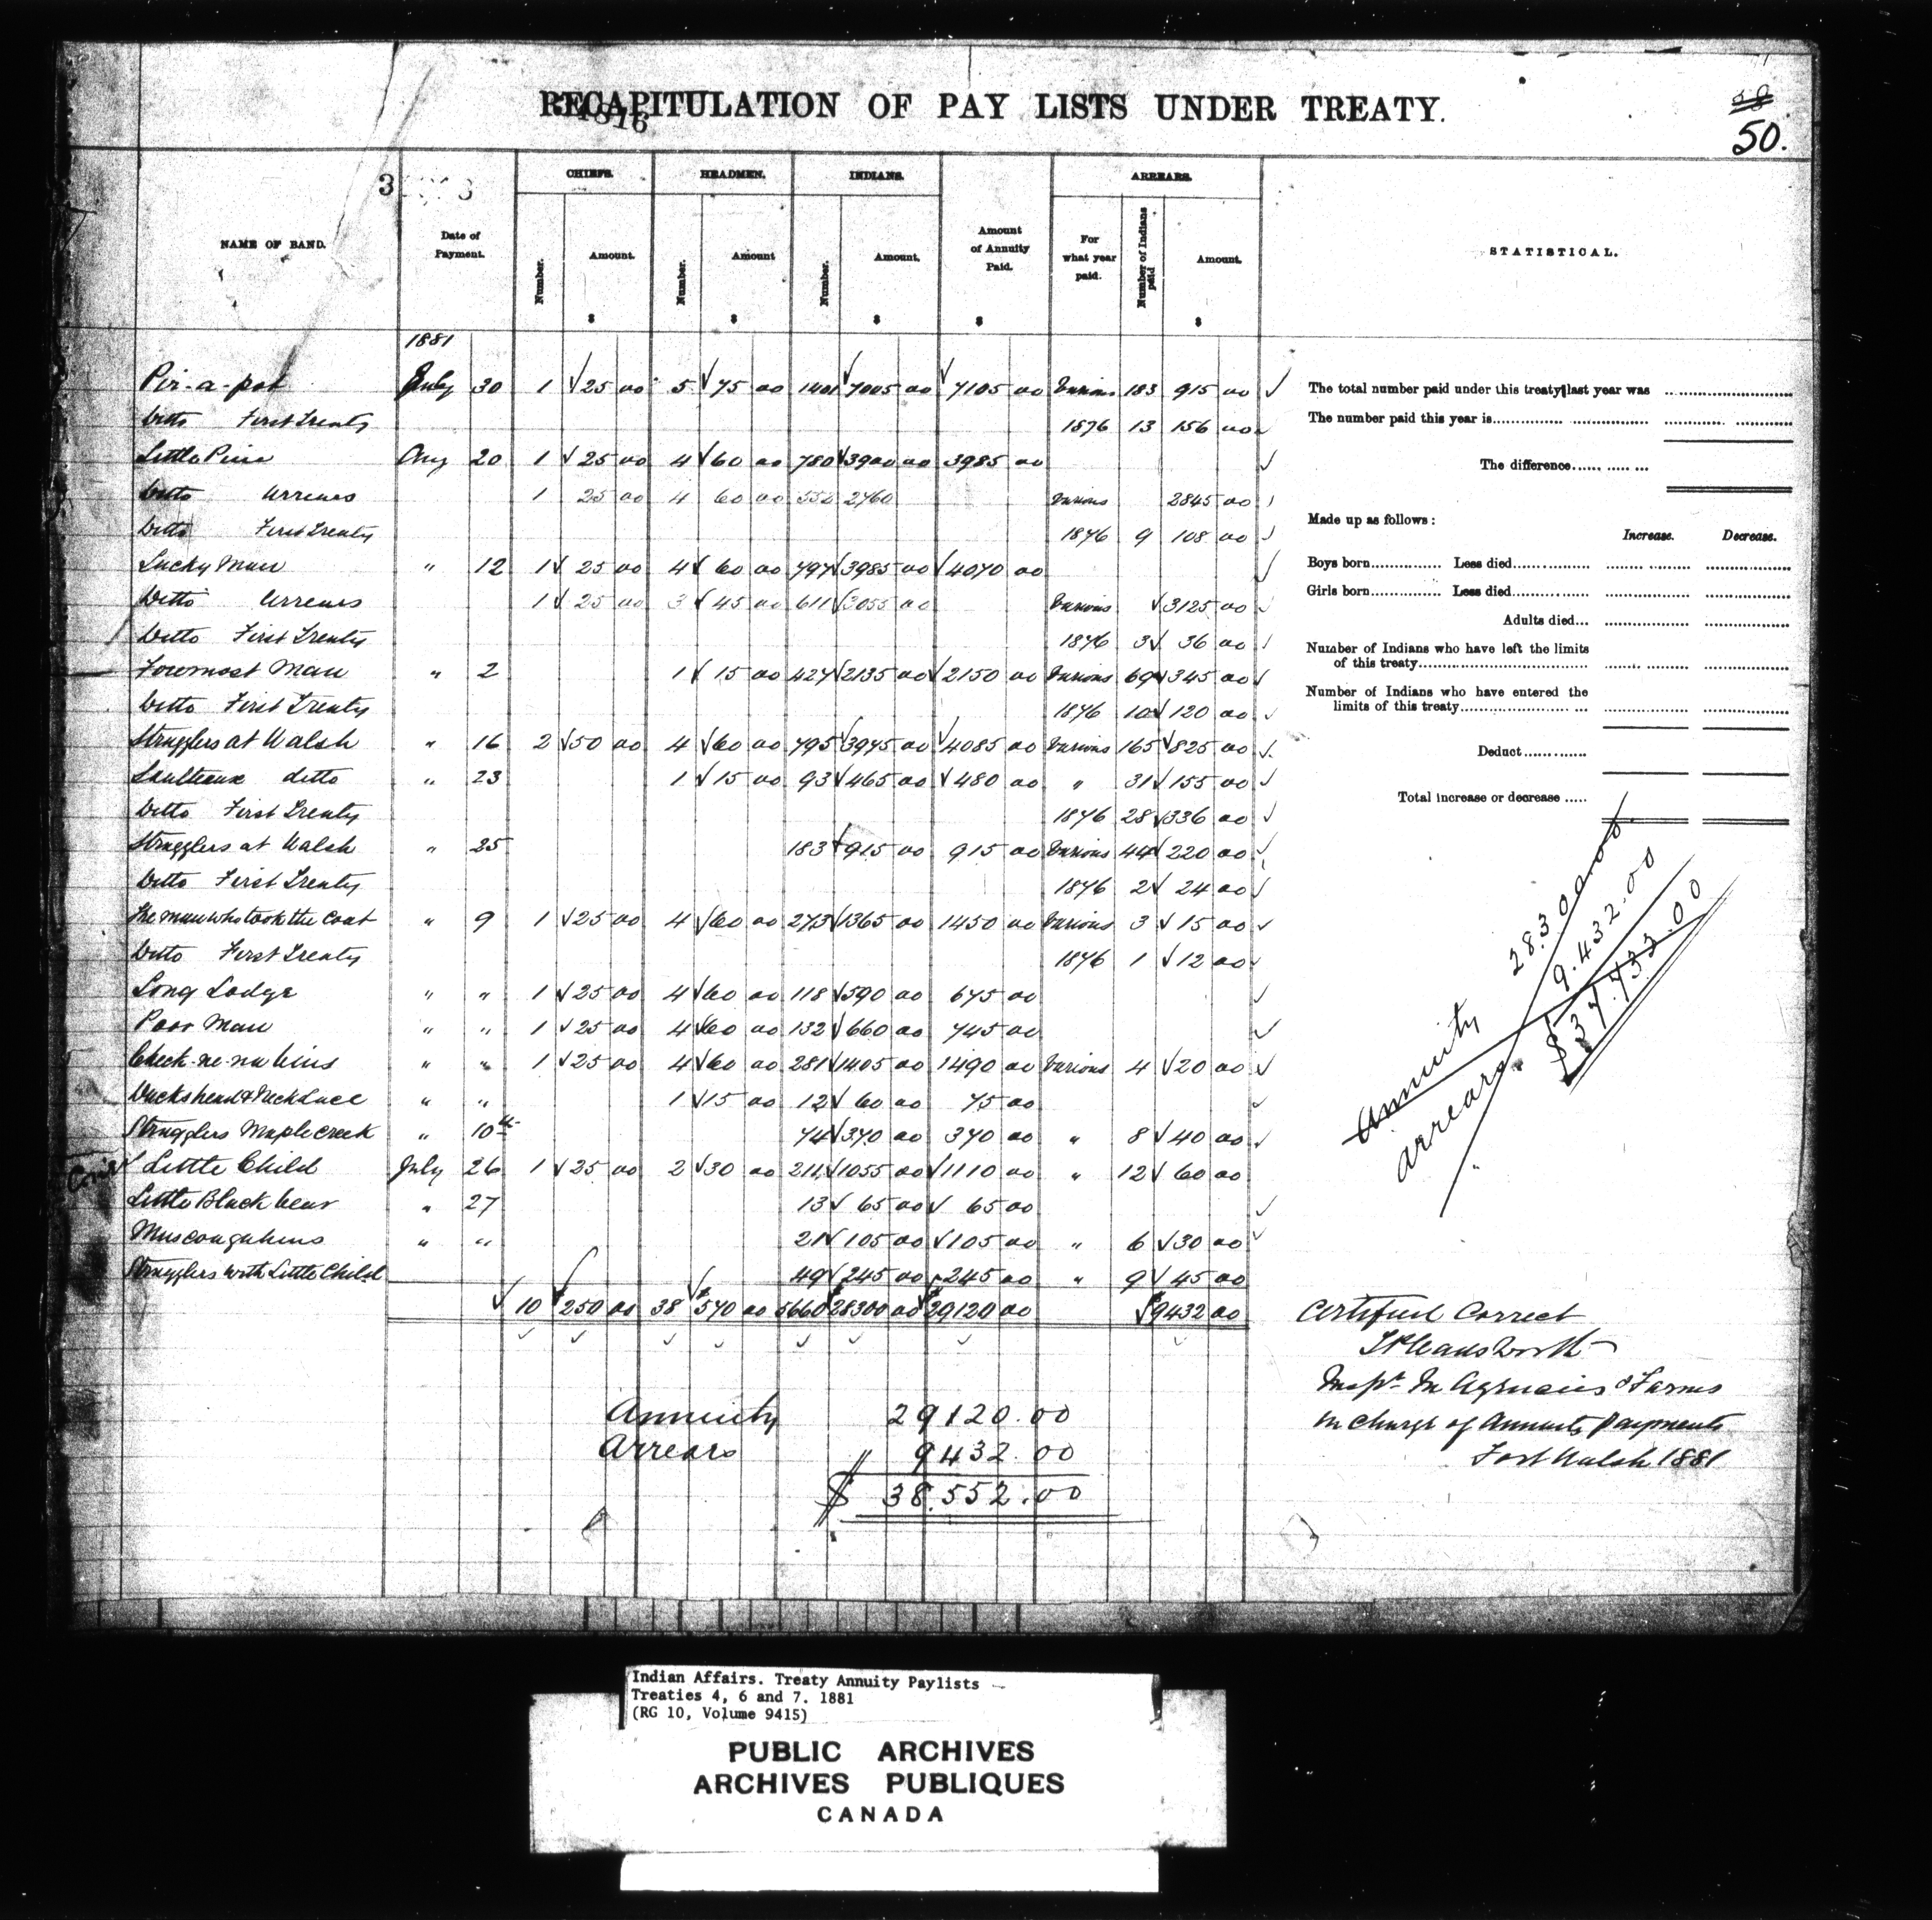 RECAPITULATION OF PAY LISTS UNDER TREATY.
50.
3
CHIEFS. HEADMEN. INDIANS. ARREARS.
NAME OF BAND. Date of Payment. Number. Amount. Number. Amount Number. Amount. Amount of Annuity Paid. For what year paid. Number of Indians paid Amount. STATISTICAL.
$ $ $ $ $
1881
Pie-a-pot July 30 1 25 00 5 75 00 1401 7005 00 7105 00 Various 183 915 00
Ditto First Treaty 1876 13 156 00
Little Pine Aug 20 1 25 00 4 60 00 780 3900 00 3985 00
Ditto Arrears 1 25 00 4 60 00 552 2760 Various 2845 00
Ditto First Treaty 1876 9 108 00
Lucky Man " 12 1 25 00 4 60 00 797 3985 00 4070 00
Ditto Arrears 1 25 00 3 45 00 611 3055 00 Various 3125 00
Ditto First Treaty 1876 3 36 00
Foremost Man " 2 1 15 00 427 2135 00 2150 00 Various 69 345 00
Ditto First Treaty 1876 10 120 00
Stragglers at Walsh " 16 2 50 00 4 60 00 795 3975 00 4085 00 Various 165 825 00
Saulteaux ditto " 23 1 15 00 93 465 00 480 00 " 31 155 00
Ditto First Treaty 1876 28 336 00
Stragglers at Walsh " 25 183 915 00 915 00 Various 44 220 00
Ditto First Treaty 1876 2 24 00
The man who took the Coat " 9 1 25 00 4 60 00 273 1365 00 1450 00 Various 3 15 00
Ditto First Treaty 1876 1 12 00
Long Lodge " " 1 25 00 4 60 00 118 590 00 675 00
Poor Man " " 1 25 00 4 60 00 132 660 00 745 00
" " 1 25 00 4 60 00 281 1405 00 1490 00 Various 4 20 00
Duckshead & Necklace " " 1 15 00 12 60 00 75 00
Stragglers Maple Creek " 10th 74 370 00 370 00 " 8 40 00
Little Child July 26 1 25 00 2 30 00 211 1055 00 1110 00 " 12 60 00
Little Black bear " 27 13 65 00 65 00
" " 21 105 00 105 00 " 6 30 00
Stragglers with Little Child 49 245 00 245 00 " 9 45 00
10 250 00 38 570 00 5660 28300 00 29120 00 9432 00
Annuity 29120.00
Arrears " 9432.00
$ 38.552.00
The total number paid under this treaty last year was
The number paid this year is
The difference
Made up as follows:
Increase. Decrease.
Boys born Less died
Girls born Less died
Adults died
Number of Indians who have left the limits
of this treaty
Number of Indians who have entered the
limits of this treaty
Deduct
Total increase or decrease
Annuity 28300.00
arrears 9.432.00
$37.733.00
Certified Correct
Wadsworth
Insp. In Agencies & Farms
in charge of Annuity Payments
Fort Walsh 1881
Indian Affairs. Treaty Annuity Paylists
Treaties 4, 6 and 7. 1881
(RG 10, Volume 9415)
PUBLIC ARCHIVES
ARCHIVES PUBLIQUES
CANADA